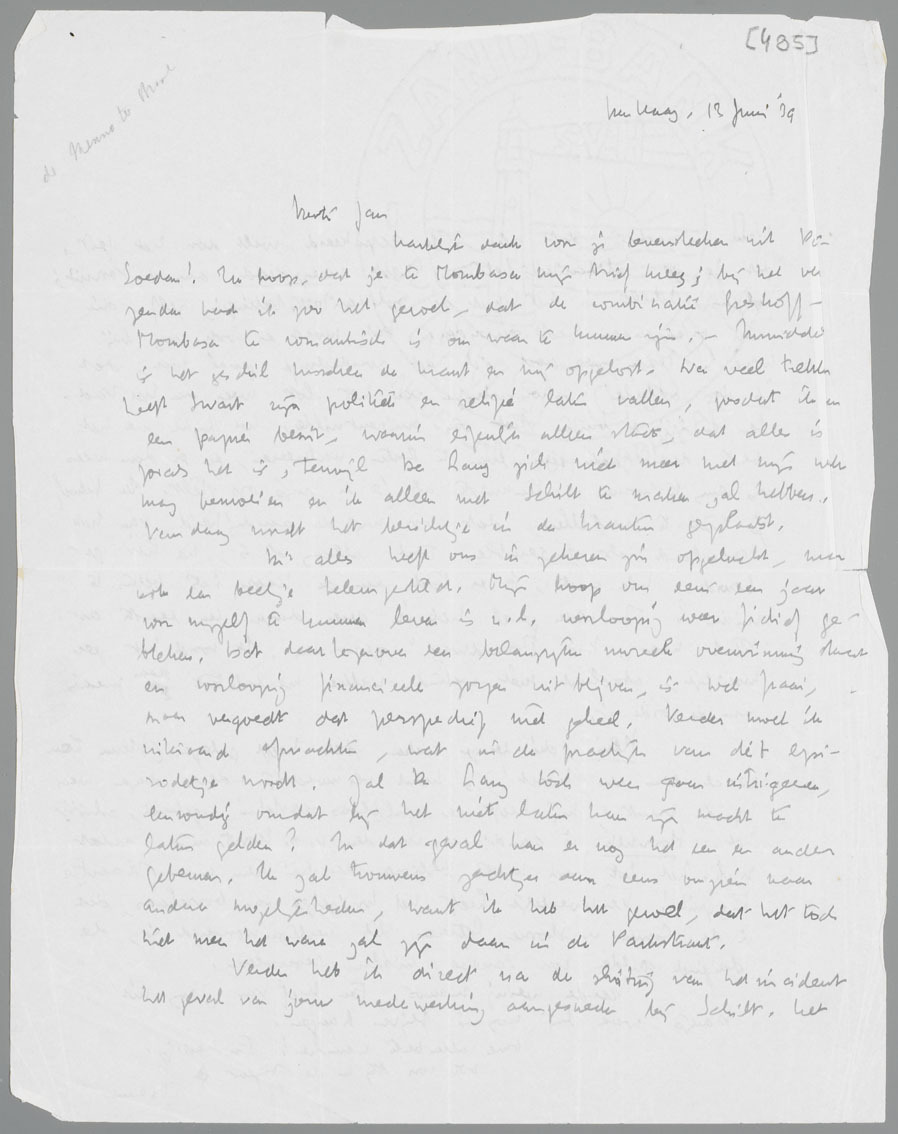 [485]
de Menno ter Braak
Den Haag, 13 Juni '39
Beste Jan
Hartelijk dank voor je levensteeken uit Port
Soedan! Ik hoop, dat je te Mombasa mijn brief kreeg; bij het ver
zenden had ik zoo het gevoel, dat de combinatie Greshoff-
Mombasa te romantisch is om waar te kunnen zijn. — Inmiddels
is het geschil tusschen de krant en mij opgelost. Na veel
heeft Swart zijn politiek en religie laten vallen, zoodat ik nu
een papier bezit, waarin eigenlijk alleen staat, dat alles is
zooals het is, terwijl De Lang zich niet meer met mijn werk
mag bemoeien en ik alleen met Schilt te maken zal hebben.
Vandaag wordt het berichtje in de kranten geplaatst.
Dit alles heeft ons in geheven zin opgelucht, maar
ook een beetje teleurgesteld. Mijn hoop om eens een jaar
voor mijzelf te kunnen leven is n.l. voorloopig weer fictief ge-
bleken. Dat daartegenover een belangrijke moreele overwinning staat
en voorloopig financieele zorgen uitblijven, is wel fraai,
maar vergoedt dat perspectief niet geheel. Verder moet ik
uiteraard afwachten, wat in de practijk van dit epi-
sodetje wordt. Zal De Lang toch weer gaan intrigeeren,
eenvoudig omdat hij het niet laten kan zijn macht te
laten gelden? In dat geval kan er nog het een en ander
gebeuren. Ik zal trouwens zachtjes aan eens omzien naar
andere mogelijkheden, want ik heb het gevoel, dat het toch
niet meer het ware zal zijn daar in de Parkstraat.
Verder heb ik direct na de sluiting van het incident
het geval van jouw medewerking aangesneden bij Schilt. Het